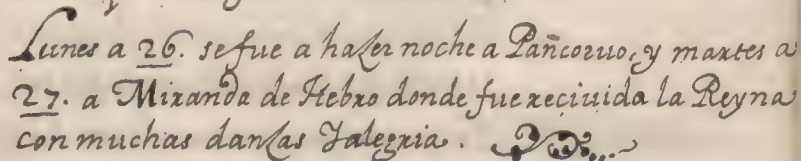 Lunes a 26. se fue a hazer noche a Pañcoruo, y martes a
27. a Miranda de Hebro donde fue reciuida la Reyna
con muchas danzas Yalegria.